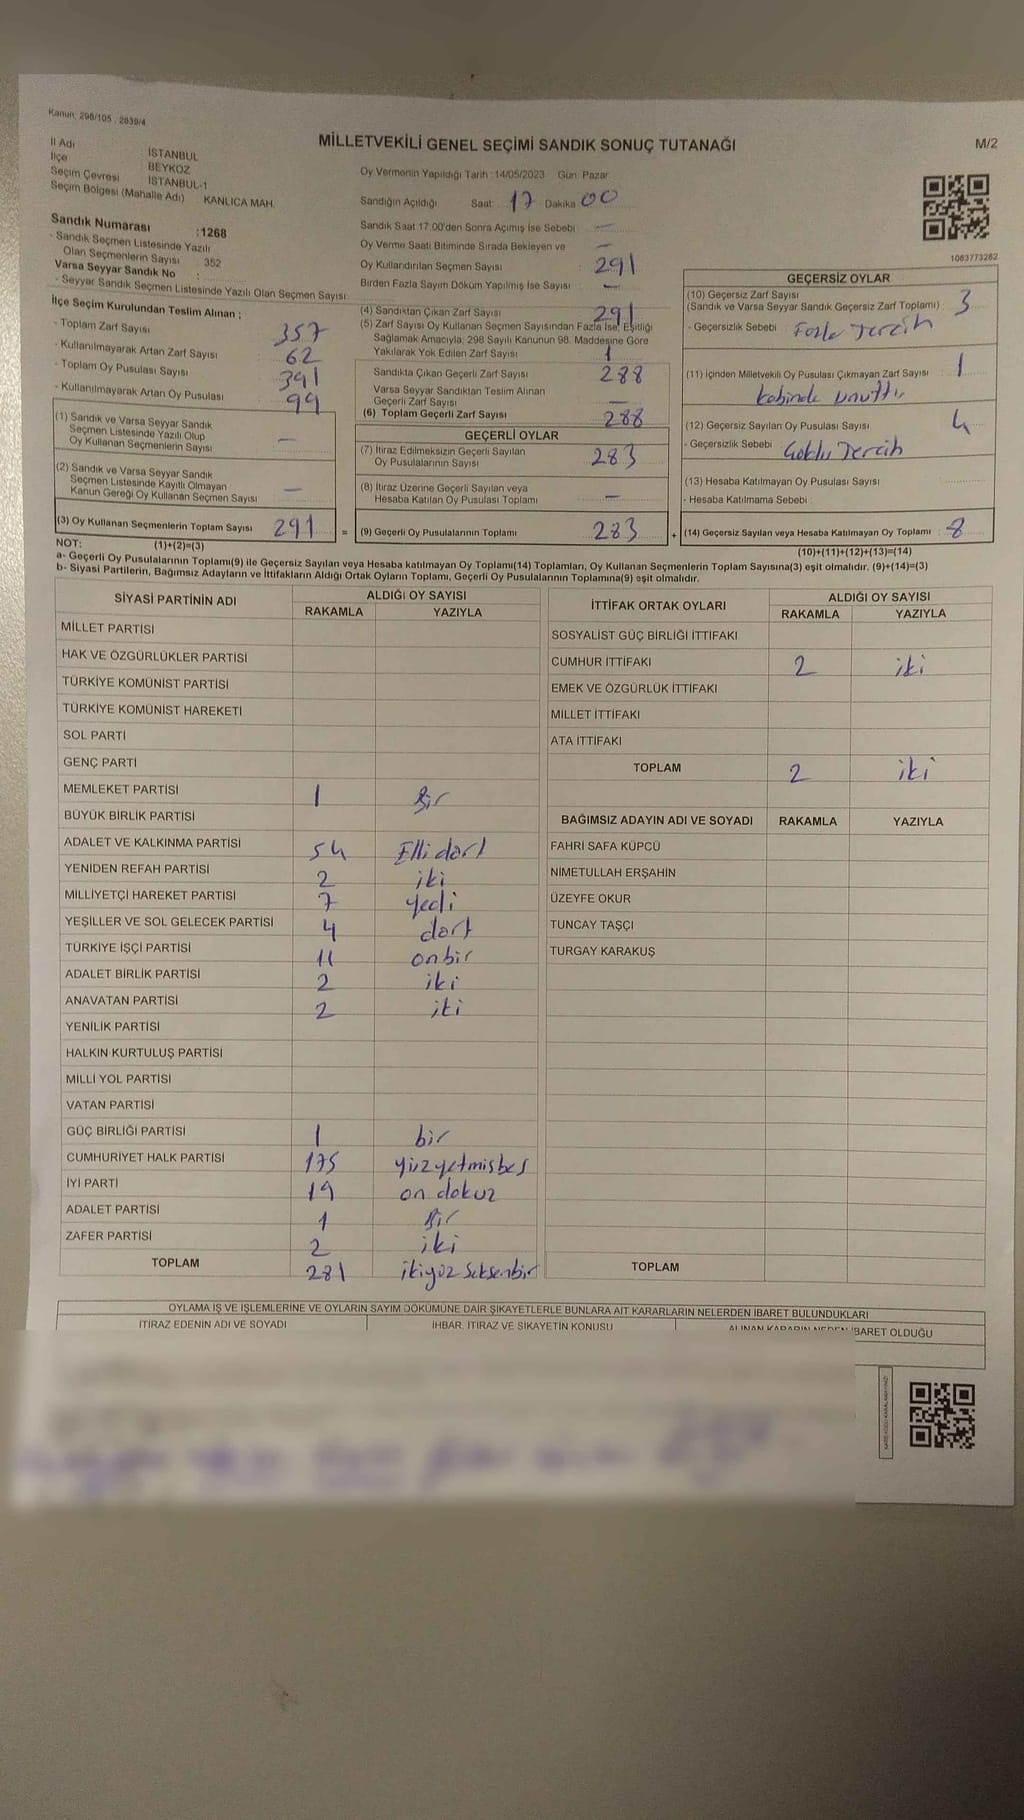 Kanun: 298/105 , 2839/4
MİLLETVEKİLİ GENEL SEÇİMİ SANDIK SONUÇ TUTANAĞI
M/2
İl Adı İSTANBUL
İlçe BEYKOZ
Seçim Çevresi İSTANBUL-1
Seçim Bölgesi (Mahalle Adı) KANLICA MAH.
Oy Vermenin Yapıldığı Tarih :14/05/2023 Gün: Pazar
Sandığın Açıldığı Saat: 17 Dakika 00
Sandık Saat 17:00'den Sonra Açımış İse Sebebi —
Oy Verme Saati Bitiminde Sırada Bekleyen ve —
Oy Kullandırılan Seçmen Sayısı 291
Birden Fazla Sayım Döküm Yapılmış İse Sayısı —
1083773262
Sandık Numarası :1268
- Sandık Seçmen Listesinde Yazılı
Olan Seçmenlerin Sayısı 352
Varsa Seyyar Sandık No :
- Seyyar Sandık Seçmen Listesinde Yazılı Olan Seçmen Sayısı:
İlçe Seçim Kurulundan Teslim Alınan ;
- Toplam Zarf Sayısı 357
- Kullanılmayarak Artan Zarf Sayısı 62
- Toplam Oy Pusulası Sayısı 391
- Kullanılmayarak Artan Oy Pusulası 99
(1) Sandık ve Varsa Seyyar Sandık
Seçmen Listesinde Yazılı Olup
Oy Kullanan Seçmenlerin Sayısı —
(2) Sandık ve Varsa Seyyar Sandık
Seçmen Listesinde Kayıtlı Olmayan
Kanun Gereği Oy Kullanan Seçmen Sayısı —
(3) Oy Kullanan Seçmenlerin Toplam Sayısı 291 =
(4) Sandıktan Çıkan Zarf Sayısı 291
(5) Zarf Sayısı Oy Kullanan Seçmen Sayısından Fazla İse, Eşitliği
Sağlamak Amacıyla; 298 Sayılı Kanunun 98. Maddesine Göre
Yakılarak Yok Edilen Zarf Sayısı 1
Sandıkta Çıkan Geçerli Zarf Sayısı 288
Varsa Seyyar Sandıktan Teslim Alınan
Geçerli Zarf Sayısı —
(6) Toplam Geçerli Zarf Sayısı 288
GEÇERLİ OYLAR
(7) İtiraz Edilmeksizin Geçerli Sayılan
Oy Pusulalarının Sayısı 283
(8) İtiraz Üzerine Geçerli Sayılan veya
Hesaba Katılan Oy Pusulası Toplamı —
(9) Geçerli Oy Pusulalarının Toplamı 283 +
GEÇERSİZ OYLAR
(10) Geçersiz Zarf Sayısı
(Sandık ve Varsa Seyyar Sandık Geçersiz Zarf Toplamı) 3
- Geçersizlik Sebebi : Fazla Tercih
(11) İçinden Milletvekili Oy Pusulası Çıkmayan Zarf Sayısı 1
kabinde unuttu
(12) Geçersiz Sayılan Oy Pusulası Sayısı 4
- Geçersizlik Sebebi : Çoklu Tercih
(13) Hesaba Katılmayan Oy Pusulası Sayısı
- Hesaba Katılmama Sebebi :
(14) Geçersiz Sayılan veya Hesaba Katılmayan Oy Toplamı : 8
NOT: (1)+(2)=(3)
(10)+(11)+(12)+(13)=(14)
a- Geçerli Oy Pusulalarının Toplamı(9) ile Geçersiz Sayılan veya Hesaba katılmayan Oy Toplamı(14) Toplamları, Oy Kullanan Seçmenlerin Toplam Sayısına(3) eşit olmalıdır. (9)+(14)=(3)
b- Siyasi Partilerin, Bağımsız Adayların ve İttifakların Aldığı Ortak Oyların Toplamı, Geçerli Oy Pusulalarının Toplamına(9) eşit olmalıdır.
SİYASİ PARTİNİN ADI ALDIĞI OY SAYISI
RAKAMLA YAZIYLA
MİLLET PARTİSİ
HAK VE ÖZGÜRLÜKLER PARTİSİ
TÜRKİYE KOMÜNİST PARTİSİ
TÜRKİYE KOMÜNİST HAREKETİ
SOL PARTİ
GENÇ PARTİ
MEMLEKET PARTİSİ 1 Bir
BÜYÜK BİRLİK PARTİSİ
ADALET VE KALKINMA PARTİSİ 54 Elli dört
YENİDEN REFAH PARTİSİ 2 iki
MİLLİYETÇİ HAREKET PARTİSİ 7 yedi
YEŞİLLER VE SOL GELECEK PARTİSİ 4 dört
TÜRKİYE İŞÇİ PARTİSİ 11 onbir
ADALET BİRLİK PARTİSİ 2 iki
ANAVATAN PARTİSİ 2 iki
YENİLİK PARTİSİ
HALKIN KURTULUŞ PARTİSİ
MİLLİ YOL PARTİSİ
VATAN PARTİSİ
GÜÇ BİRLİĞİ PARTİSİ 1 bir
CUMHURİYET HALK PARTİSİ 175 yüzyetmişbeş
İYİ PARTİ 19 on dokuz
ADALET PARTİSİ 1 Bir
ZAFER PARTİSİ 2 iki
TOPLAM 281 ikiyüz seksenbir
İTTİFAK ORTAK OYLARI ALDIĞI OY SAYISI
RAKAMLA YAZIYLA
SOSYALİST GÜÇ BİRLİĞİ İTTİFAKI
CUMHUR İTTİFAKI 2 iki
EMEK VE ÖZGÜRLÜK İTTİFAKI
MİLLET İTTİFAKI
ATA İTTİFAKI
TOPLAM 2 iki
BAĞIMSIZ ADAYIN ADI VE SOYADI RAKAMLA YAZIYLA
FAHRİ SAFA KÜPCÜ
NİMETULLAH ERŞAHİN
ÜZEYFE OKUR
TUNCAY TAŞÇI
TURGAY KARAKUŞ
TOPLAM
OYLAMA İŞ VE İŞLEMLERİNE VE OYLARIN SAYIM DÖKÜMÜNE DAİR ŞİKAYETLERLE BUNLARA AİT KARARLARIN NELERDEN İBARET BULUNDUKLARI
İTİRAZ EDENİN ADI VE SOYADI İHBAR, İTİRAZ VE ŞİKAYETİN KONUSU ALINAN KARARIN NEDEN İBARET OLDUĞU